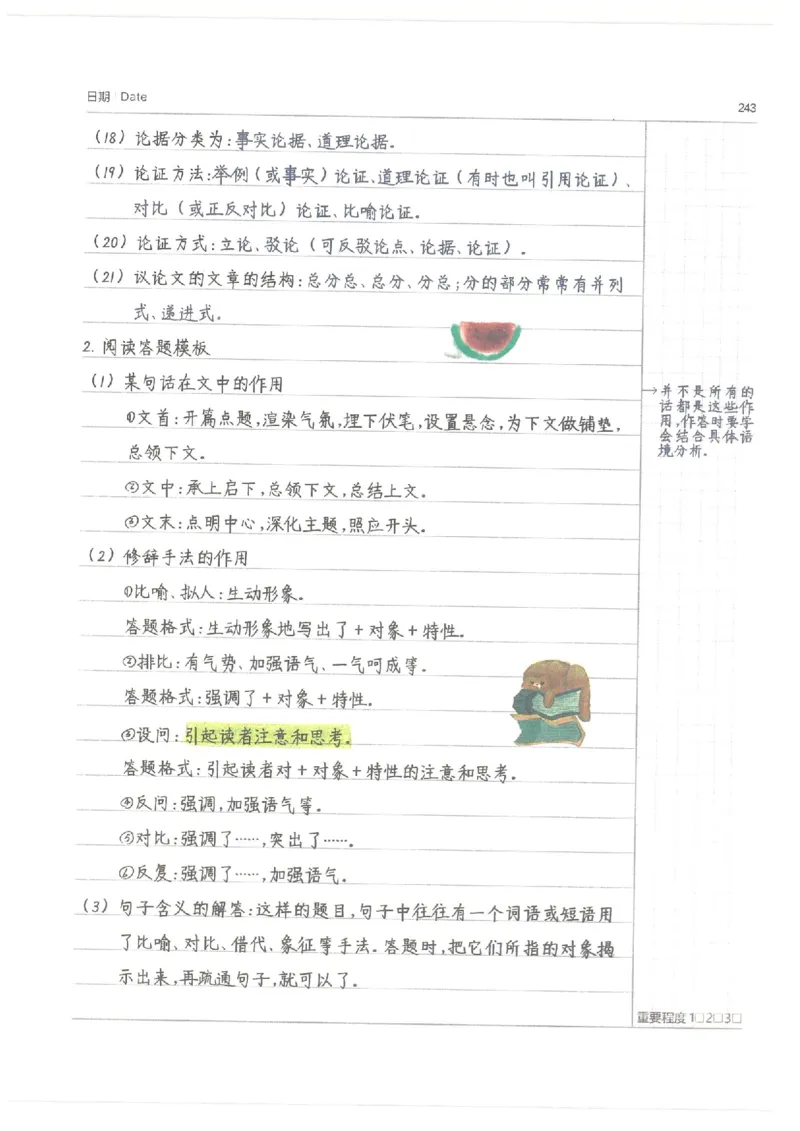 日期 Date
243
(18) 论据分类为:事实论据、道理论据。
(19) 论证方法:举例(或事实)论证、道理论证(有时也叫引用论证)、
对比(或正反对比)论证、比喻论证。
(20) 论证方式:立论、驳论(可反驳论点、论据、论证)。
(21) 议论文的文章的结构:总分总、总分、分总;分的部分常常有并列
式、递进式。
2. 阅读答题模板
(1) 某句话在文中的作用
①文首:开篇点题,渲染气氛,埋下伏笔,设置悬念,为下文做铺垫,
总领下文。
②文中:承上启下,总领下文,总结上文。
③文末:点明中心,深化主题,照应开头。
(2) 修辞手法的作用
①比喻、拟人:生动形象。
答题格式:生动形象地写出了+对象+特性。
②排比:有气势、加强语气、一气呵成等。
答题格式:强调了+对象+特性。
③设问:引起读者注意和思考。
答题格式:引起读者对+对象+特性的注意和思考。
④反问:强调,加强语气等。
⑤对比:强调了……,突出了……。
⑥反复:强调了……,加强语气。
(3) 句子含义的解答:这样的题目,句子中往往有一个词语或短语用
了比喻、对比、借代、象征等手法。答题时,把它们所指的对象揭
示出来,再疏通句子,就可以了。
→并不是所有的
话都是这些作
用,作答时要学
会结合具体语
境分析。
重要程度 1□2□3□